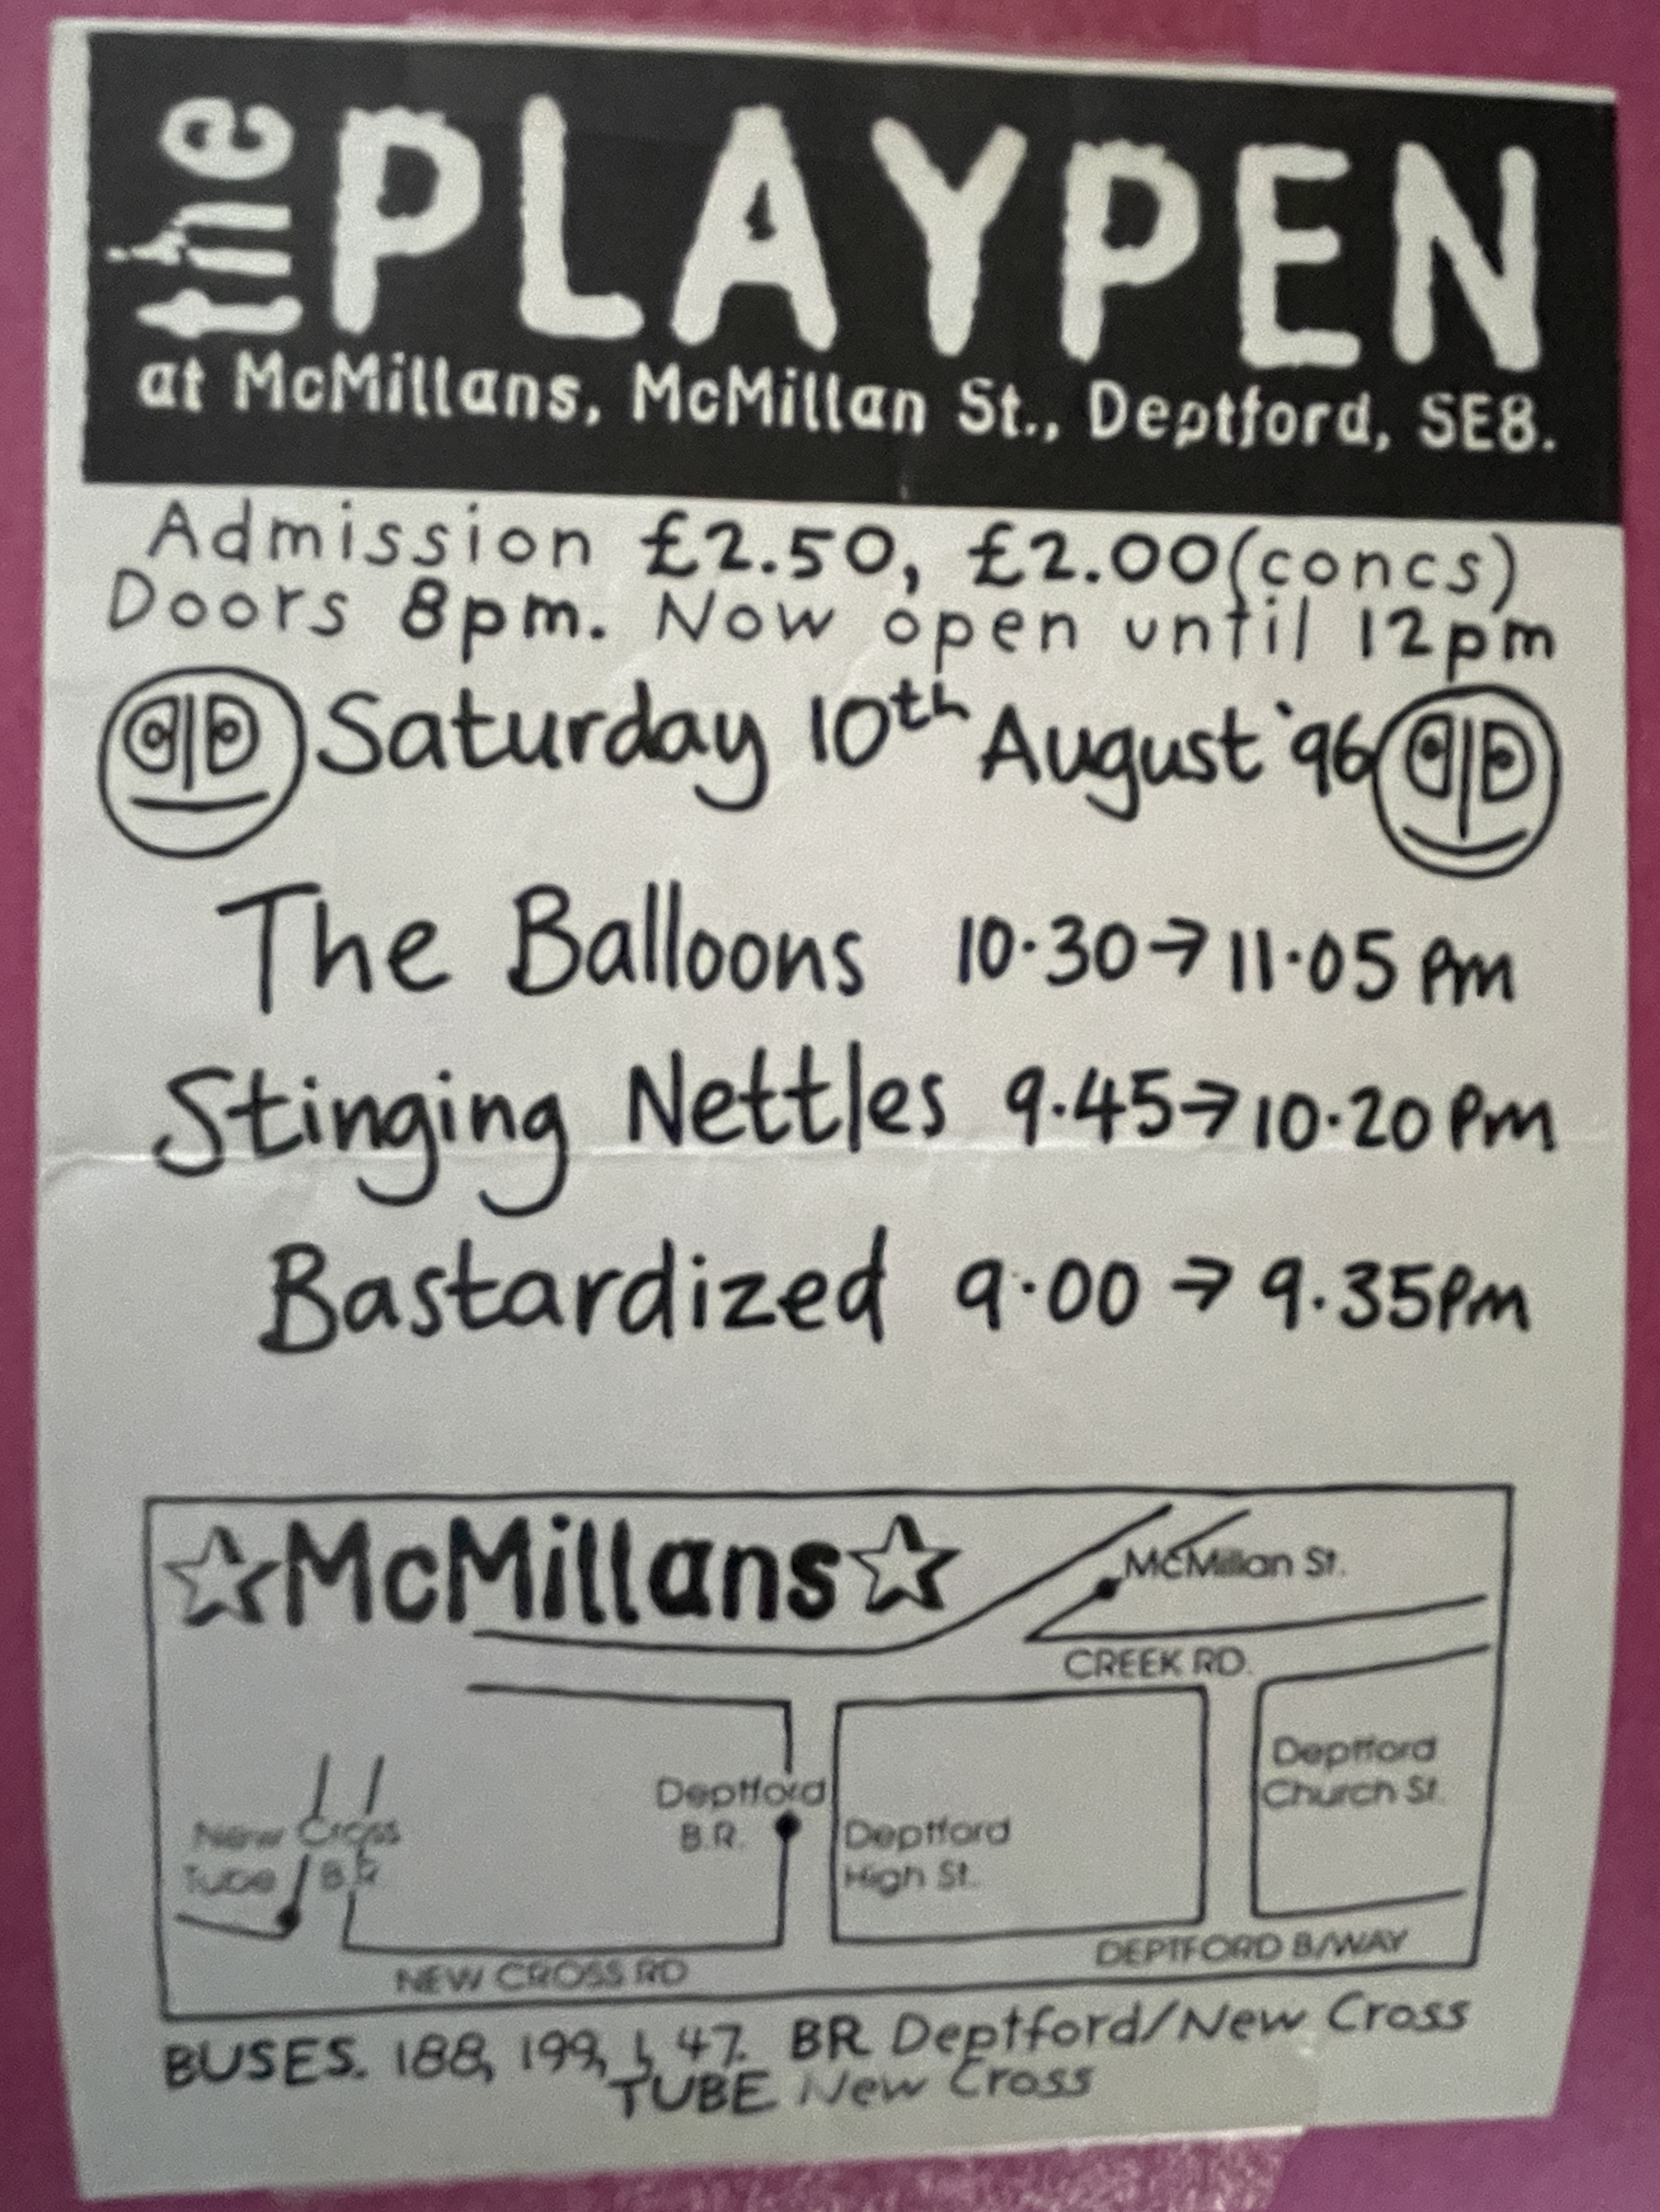 the PLAYPEN
at McMillans, McMillan St., Deptford, SE8.
Admission £2.50, £2.00 (concs)
Doors 8pm. Now open until 12pm
Saturday 10th August '96
The Balloons 10·30→11·05 pm
Stinging Nettles 9.45→10·20 Pm
Bastardized 9·00→9.35Pm
☆McMillans☆
McMillan St.
CREEK RD.
Deptford
Church St.
Deptford
B.R.
Deptford
High St.
New Cross
Tube B.R
DEPTFORD B/WAY
NEW CROSS RD
BUSES. 188, 199, 1, 47. BR Deptford/New Cross
TUBE New Cross